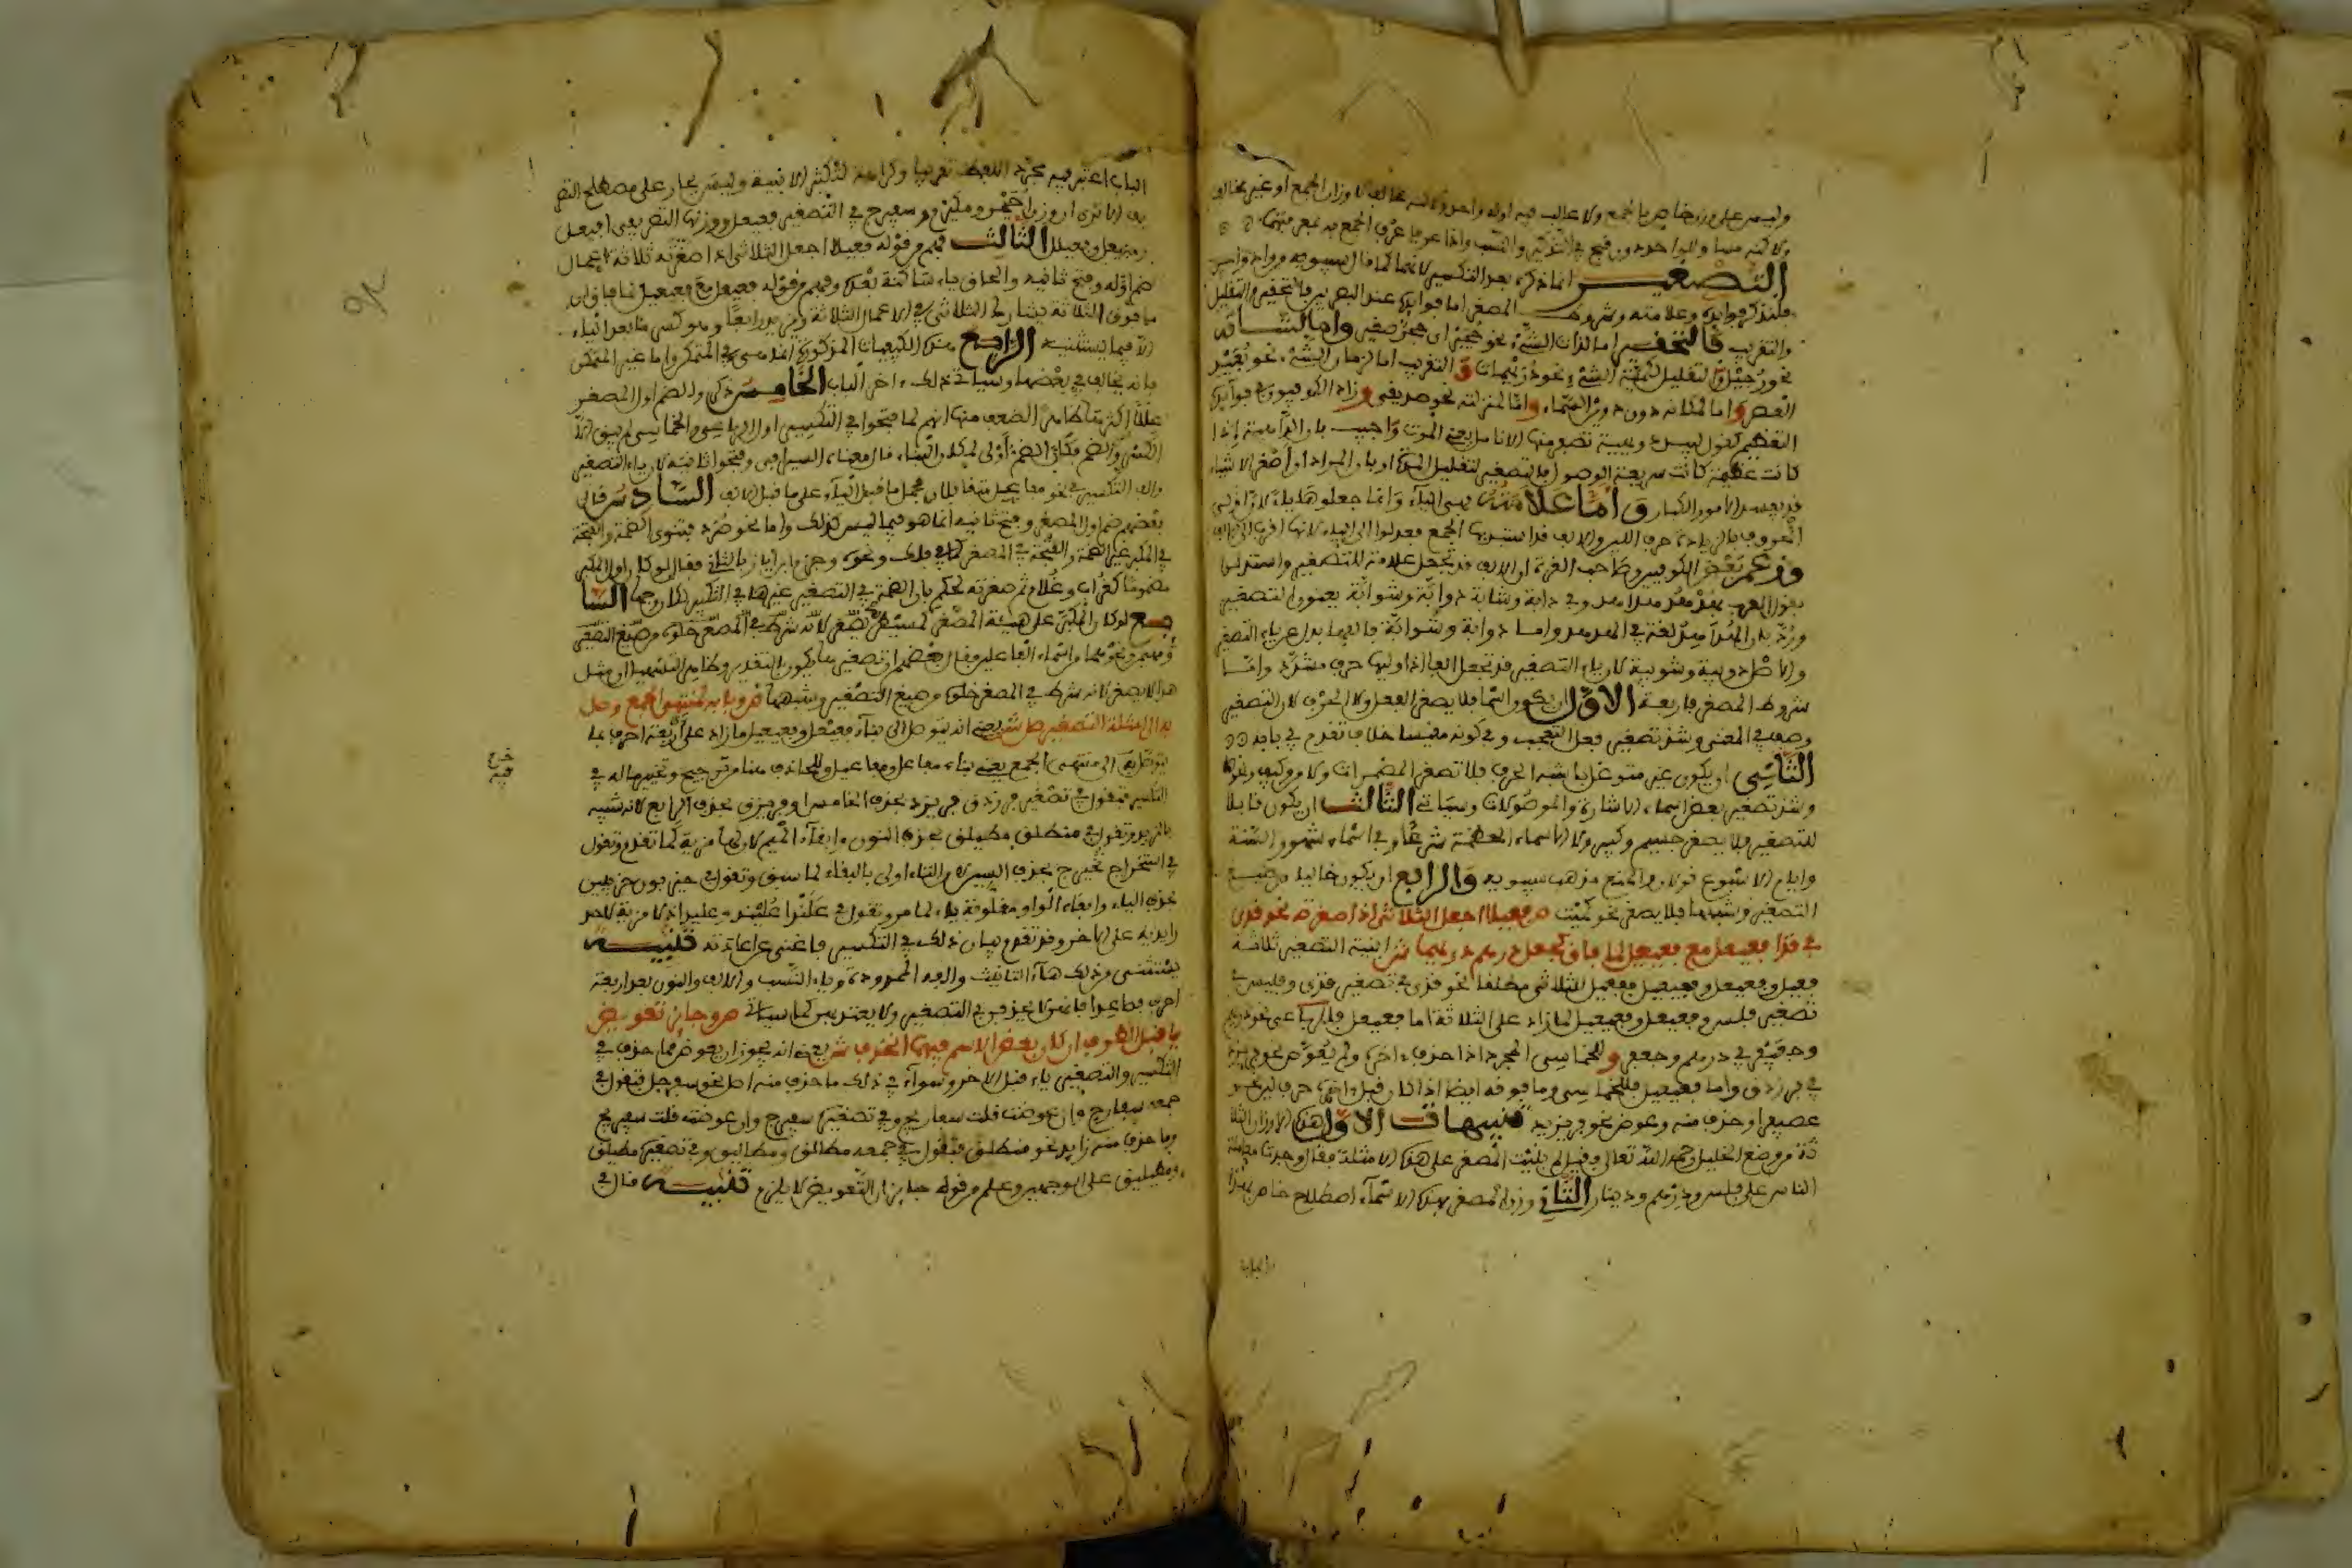 وليس على وزن خاص بالجمع ولا غالب فيه اوله واحد ولانه مخالف لاوزان الجمع او غير مخالف
التصغير انما ذكره بعد التكسير لانهما كما قال سيبويه من واد واحد
فلنذكر فوايده وعلامته وشروط المصغر اما فوايده عند البصريين فالتحقير والتقليل
والتقريب فالتحقير اما لذات الشيء نحو حجير اى حجر صغير واما لشانه
نحو رجيل و التقليل لكمية الشيء نحو دريهمات و التقريب اما لزمان الشيء نحو بعيد
العصر و اما لمكانه دون دوين السماء و اما لمنزلته نحو صديقي و زاد الكوفيون في فوايده
التعظيم كقول لبيد دويهية تصفر منها الانامل يعني الموت واجيب بان الداهية اذا
كانت عظيمة كانت سريعة الوصول فالتصغير لتقليل المدة او بان المراد ان اصغر الاشياء
قد يفسد الامور الكبار و اما علامته فهي الياء وانما جعلوها ياء لان اولى
الحروف بالزيادة حرف اللين والالف قد استبد بها الجمع فعدلوا الى الياء لانها اقرب الى الالف
وزعم بعض الكوفيين وصاحب الغرة ان الالف قد تجعل علامة للتصغير واستدلوا
بقول العرب في هدهد هداهد وفي دابة وشابة دوابة وشوابة يعنون التصغير
ورد بان الهداهد لغة في الهدهد واما دوابة وشوابة فالفهما بدل عن ياء التصغير
والاصل دويبة وشويبة لان ياء التصغير قد تجعل الفا اذا وليها حرف مشدد واما
شروط المصغر فاربعة الاول ان يكون اسما فلا يصغر الفعل ولا الحرف لان التصغير
وصف في المعنى وشذ تصغير فعل التعجب وفي كونه مقيسا خلاف تقدم في بابه
الثاني ان يكون غير متوغل في شبه الحرف فلا تصغر المضمرات ولا من وكيف ونحوها
وشذ تصغير بعض اسماء الاشارة والموصولات وسياتي الثالث ان يكون قابلا
للتصغير فلا يصغر جسيم وكبير ولا الاسماء المعظمة شرعا وفي اسماء شهور السنة
وايام الاسبوع قولان والمنع مذهب سيبويه والرابع ان يكون خاليا من صيغ
التصغير وشبهها فلا يصغر نحو كميت ص فعيلا اجعل الثلاثي اذا صغرته نحو قذى
في قذا فعيعل مع فعيعيل لما فاق كجعل درهم دريهما ش ابنية التصغير ثلاثة
فعيل وفعيعل وفعيعيل ففعيل للثلاثي مطلقا نحو قذي في تصغير قذى وفليس في
تصغير فلس وفعيعل وفعيعيل لما زاد على الثلاثة اما فعيعل فللرباعي نحو دريهم
وجعيفر في درهم وجعفر و للخماسي المجرد اذا حذف اخره ولم يعوض نحو فريزد
في فرزدق واما فعيعيل فللخماسي وما فوقه ايضا اذا كان قبل اخره حرف لين نحو
عصيفر او حذف منه وعوض نحو فريزيد تنبيهات الاول هذه الاوزان الثلا
ثة من وضع الخليل رحمه الله تعالى وقيل له لم بنيت المصغر على هذه الامثلة فقال وجدت معاملة
الناس على فلس ودرهم ودينار الثاني وزن المصغر بهذه الاسماء اصطلاح خاص بهذا
الباب اعتبر فيه مجرد اللفظ تقريبا وكراهة لتكثير الابنية وليس بجار على مصطلح التصر
يف الا ترى ان وزن احيمر ومكيرم وسفيرج في التصغير فعيعل ووزنها التصريفي افيعل
ومفيعل وفعيلل الثالث فهم من قوله فعيلا اجعل الثلاثي اذا صغرته ثلاثة اعمال
ضم اوله وفتح ثانيه والحاق ياء ساكنة بعده وفهم من قوله فعيعل مع فعيعيل لما فاق ان
ما فوق الثلاثة يشارك الثلاثي في الاعمال الثلاثة ويزيد رابعا وهو كسر ما بعد الياء
الا فيما يستثنيه الرابع هذه الكيفيات المذكورة انما هي في المتمكن واما غير المتمكن
فانه يخالف في بعضها وسياتي ذلك اخر الباب الخامس ذكروا لضم اول المصغر
عللا اكثرها ظاهر الضعف منها انهم لما فتحوا في التكسير اول الرباعي والخماسي لم يبق الا
الكسر والضم فكان الضم اولى لمكان الياء قال معناه السيرافي وفتحوا ثانيه لان ياء التصغير
والف التكسير في نحو مفاعيل متقابلان فحمل ما قبل الياء على ما قبل الالف السادس قال
بعضهم ضم اول المصغر وفتح ثانيه انما هو فيما ليس كذلك واما نحو صرد فتنوى الضمة والفتحة
في المكبر غير الضمة والفتحة في المصغر كما في فلك ونحوه وجزم ابن اياز بالثاني فقال لو كان اول المكبر
مضموما كغراب وغلام ثم صغرته لحكم بان الضمة في التصغير غيرها في التكبير السا
بع لو كان المكبر على هيئة المصغر لم يصغر لانه شرط في المصغر خلوه من صيغ التصغير
هذا لا يصغر لانه شرط في المصغر خلوه من صيغ التصغير وشبهها ص وما به لمنتهى الجمع وصل
به الى امثلة التصغير صل ش يعني انه يتوصل الى بناء فعيعل وفعيعيل مما زاد على اربعة احرف بما
يتوصل به الى منتهى الجمع يعني بناء مفاعل ومفاعيل وللحاذف هنا من ترجيح وتخيير ماله في
التكسير فتقول في تصغير فرزدق فريزد بحذف الخامس او فريزق بحذف الرابع لانه شبيه
بالمزيد وتقول في منطلق مطيلق بحذف النون وابقاء الميم لان لها مزية كما تقدم وتقول
في استخراج تخيريج بحذف السين والتاء اولى بالبقاء لما سبق وتقول في حيزبون حزيبين
بحذف الياء وابقاء الواو مقلوبة ياء لما مر وتقول في علندا عليند وعليد اذ لا مزية لاحد
زايديه على الاخر وقد تقدم بيان ذلك في التكسير فاغنى عن اعادته تنبيه
يستثنى من ذلك هاء التانيث والفه الممدودة وياء النسب والالف والنون بعد اربعة
احرف فصاعدا فانهن لا يحذفن في التصغير ولا يعتد بهن كما سياتي ص وجايز تعويض
يا قبل الطرف ان كان بعض الاسم فيهما انحذف ش يعني انه يجوز ان يعوض مما حذف في
التكسير والتصغير ياء قبل الاخر وسواء في ذلك ما حذف منه اصل نحو سفرجل فتقول في
جمعه سفارج وان عوضت قلت سفاريج وفي تصغيره سفيرج وان عوضته قلت سفيريج
وما حذف منه زايد نحو منطلق فتقول في جمعه مطالق ومطاليق وفي تصغيره مطيلق
ومطيليق على الوجهين وعلم من قوله جايز ان التعويض لا يلزم تنبيه قال في